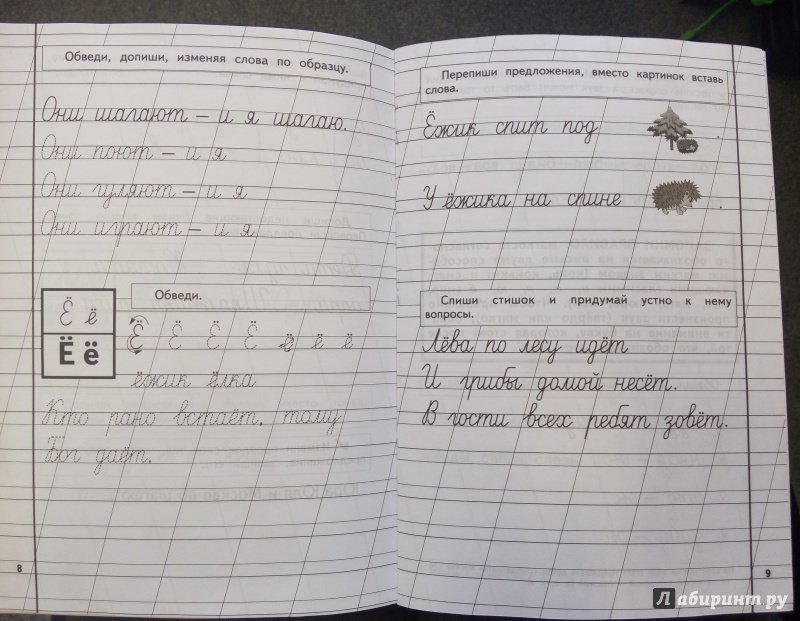 Обведи, допиши, изменяя слова по образцу.
Они шагают – и я шагаю.
Они поют – и я
Они гуляют – и я
Они играют – и я
Обведи.
Ё ё
Ё ё
Ё Ё Ё Ё ё ё ё
ёжик ёлка
Кто рано встаёт, тому
Бог даёт.
8
Перепиши предложения, вместо картинок вставь
слова.
Ёжик спит под .
У ёжика на спине .
Спиши стишок и придумай устно к нему
вопросы.
Лёва по лесу идёт
И грибы домой несёт.
В гости всех ребят зовёт.
9
Лабиринт.ру